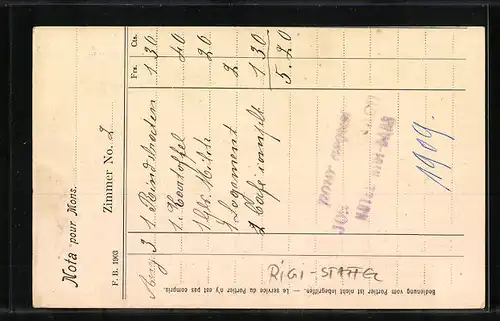 Nota pour Mons.
Zimmer No. 2
F. B. 1903
Frs. Cts.
3. 1 Rindsbraten 1 30
1 Kartoffel 40
1 Gls. Milch 20
1 Logement 2
1 Café complt 1 30
5. 20
pour acquit
HOTEL RIGI-STAFFEL
1909.
RIGI-STAFFEL
Bedienung vom Portier ist nicht inbegriffen. — Le service du Portier n'y est pas compris.